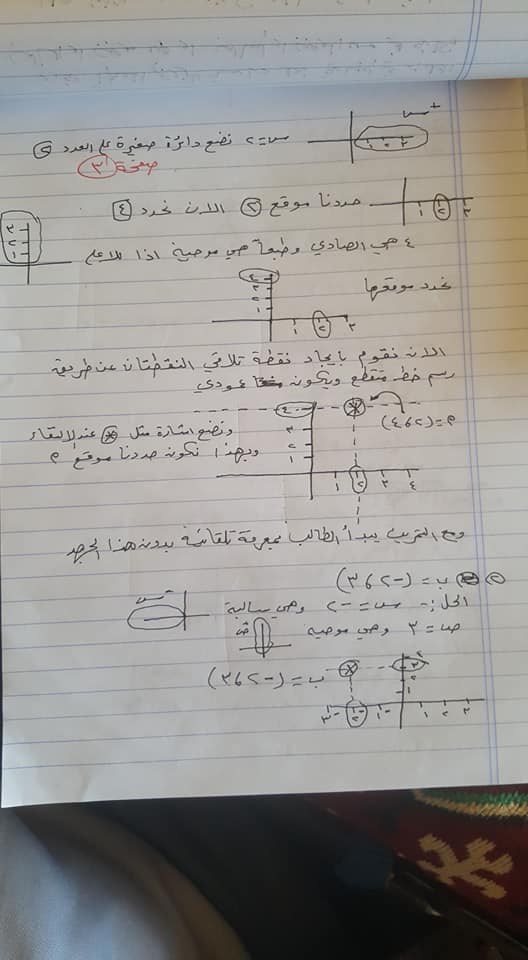 س+
١ ٢ ٣
س=٢ نضع دائرة صغيرة على العدد ٢
صفحة ٣
حددنا موقع ٢ الان نحدد ٤
١ ٢ ٣
٣
٢
١
٤ هي الصادي وطبعاً هي موجبة اذا للاعلى
نحدد موقعها
٤
٣
٢
١
١ ٢ ٣
الان نقوم بايجاد نقطة تلاقي النقطتان عن طريق
رسم خط متقطع ويكون عمودي
٤
٣
٢
١
م=(٢،٤)
ونضع اشارة مثل * عند الالتقاء
وبهذا نكون حددنا موقع م
١ ٢ ٣ ٤
ومع التدريب يبدأ الطالب بمعرفة تلقائية بدون هذا الجهد
٢ ب=(-٢،٣)
الحل:- س=-٢ وهي سالبة
س-
ص=٣ وهي موجبة
ص+
ب=(-٢،٣)
٣
٢
١
-٣ -٢ -١ ١ ٢ ٣